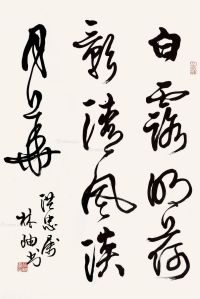 白露明荷
影清风淡
月华
洪忠属
林岫书